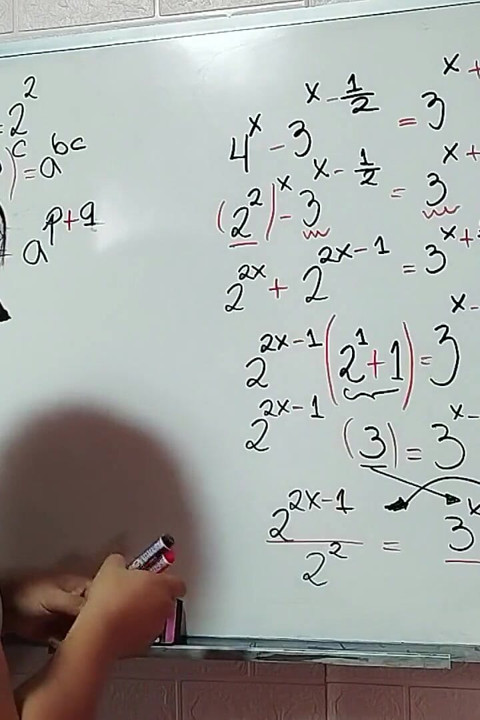 = 2²
)ᶜ = aᵇᶜ
a^(p+q)
4^x - 3^(x-1/2) = 3^(x+
(2²)^x - 3^(x-1/2) = 3^(x+
2^(2x) + 2^(2x-1) = 3^(x+
2^(2x-1) (2¹+1) = 3^(x-
2^(2x-1) (3) = 3^(x-
2^(2x-1)/2² = 3^x